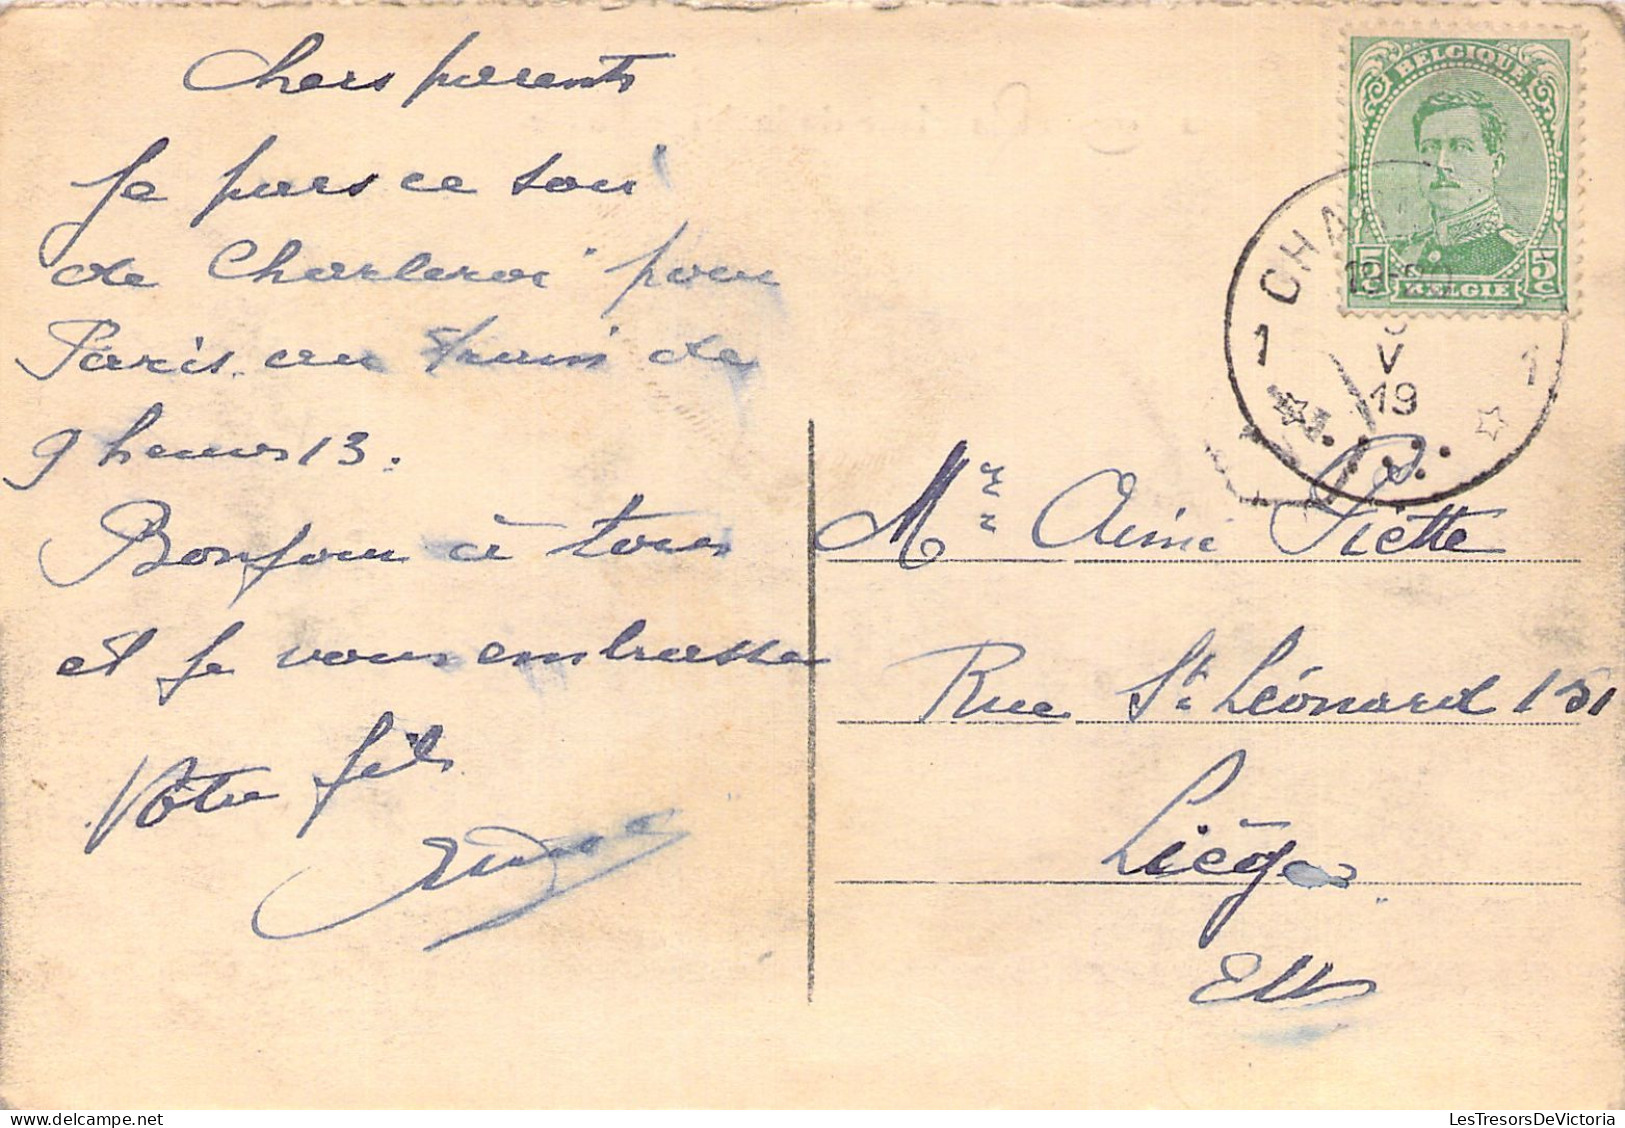 Chers parents
Je pars ce soir
de Charleroi pour
Paris au train de
9 heures 13.
Bonjour à tous
et je vous embrasse
Votre fils
BELGIQUE
5c 5c
BELGIE
1 1
V
19
Mr Aimé Piette
Rue St Léonard 151
Liège
E/V
LesTresorsDeVictoria